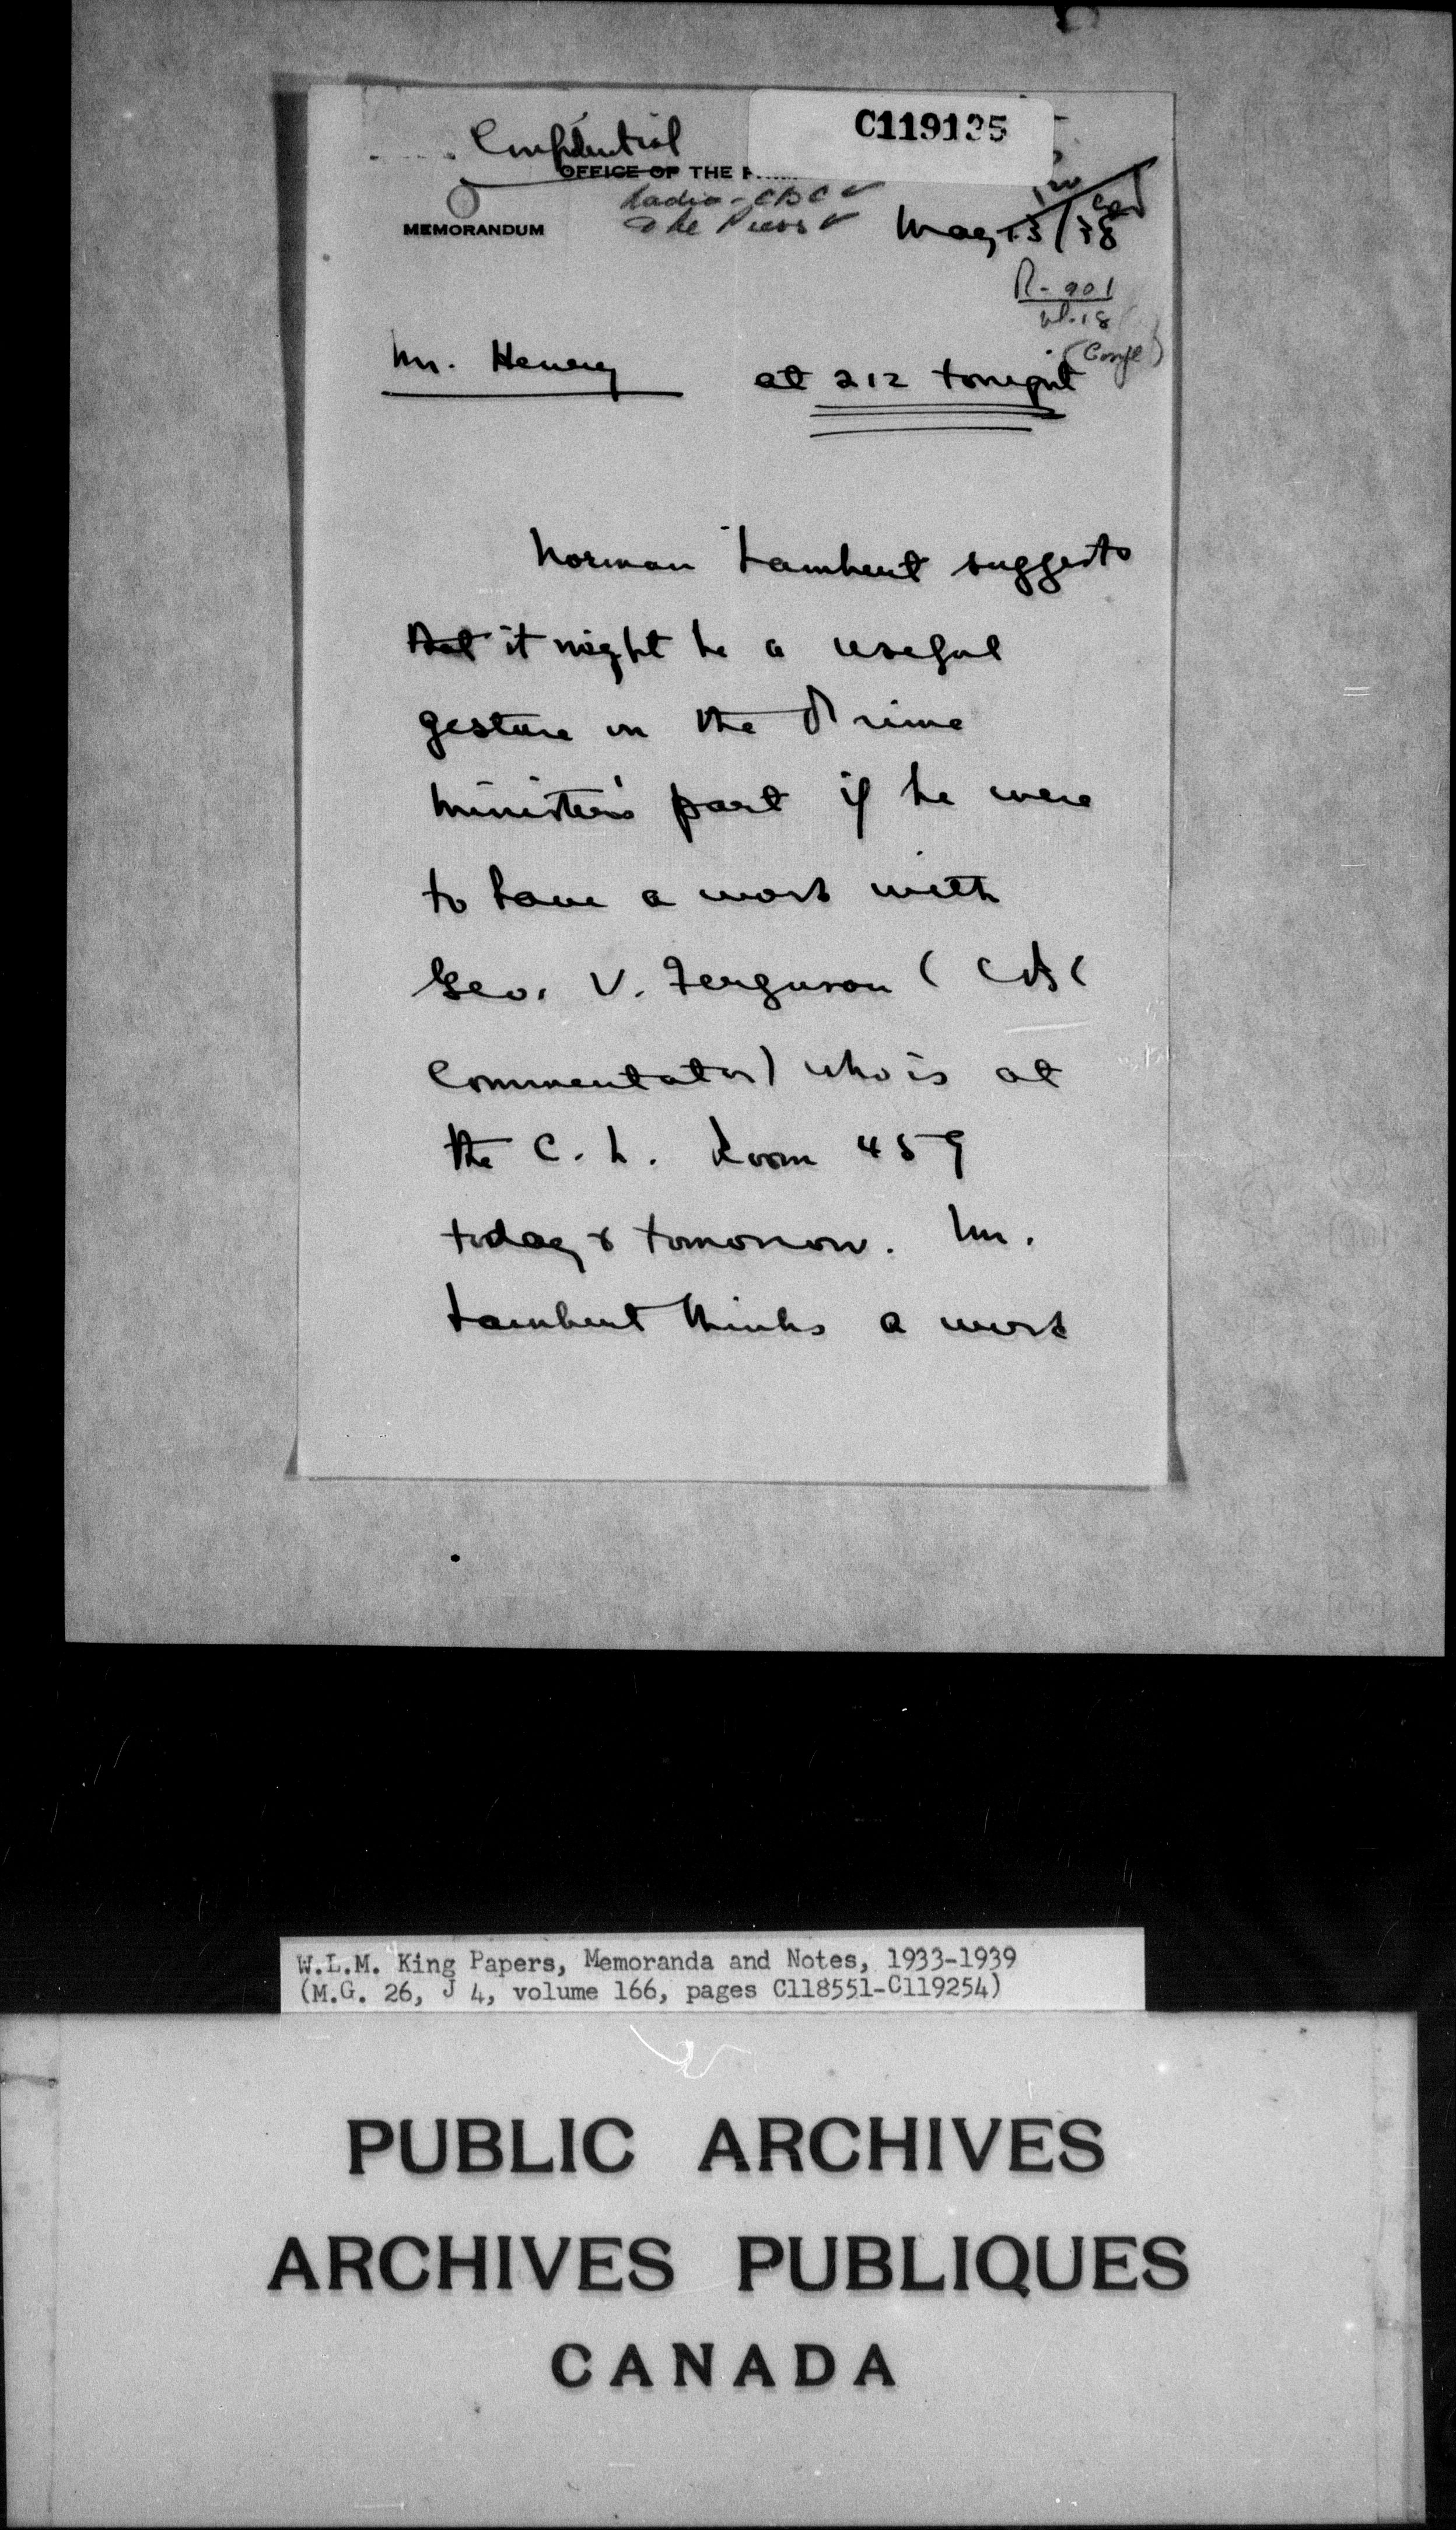 C119135
Confidential
OFFICE OF THE P
Radio - CBC ✓
The Press ✓
MEMORANDUM
May 13/38
R-901
vl. 18
(Conf)
Mr. Henry
at 212 tonight
Norman Lambert suggests
that it might be a useful
gesture on the Prime
Minister's part if he were
to have a word with
Geo. V. Ferguson (CBC
Commentator) who is at
the C. L. Room 459
today & tomorrow. Mr.
Lambert thinks a word
W.L.M. King Papers, Memoranda and Notes, 1933-1939
(M.G. 26, J 4, volume 166, pages C118551-C119254)
PUBLIC ARCHIVES
ARCHIVES PUBLIQUES
CANADA